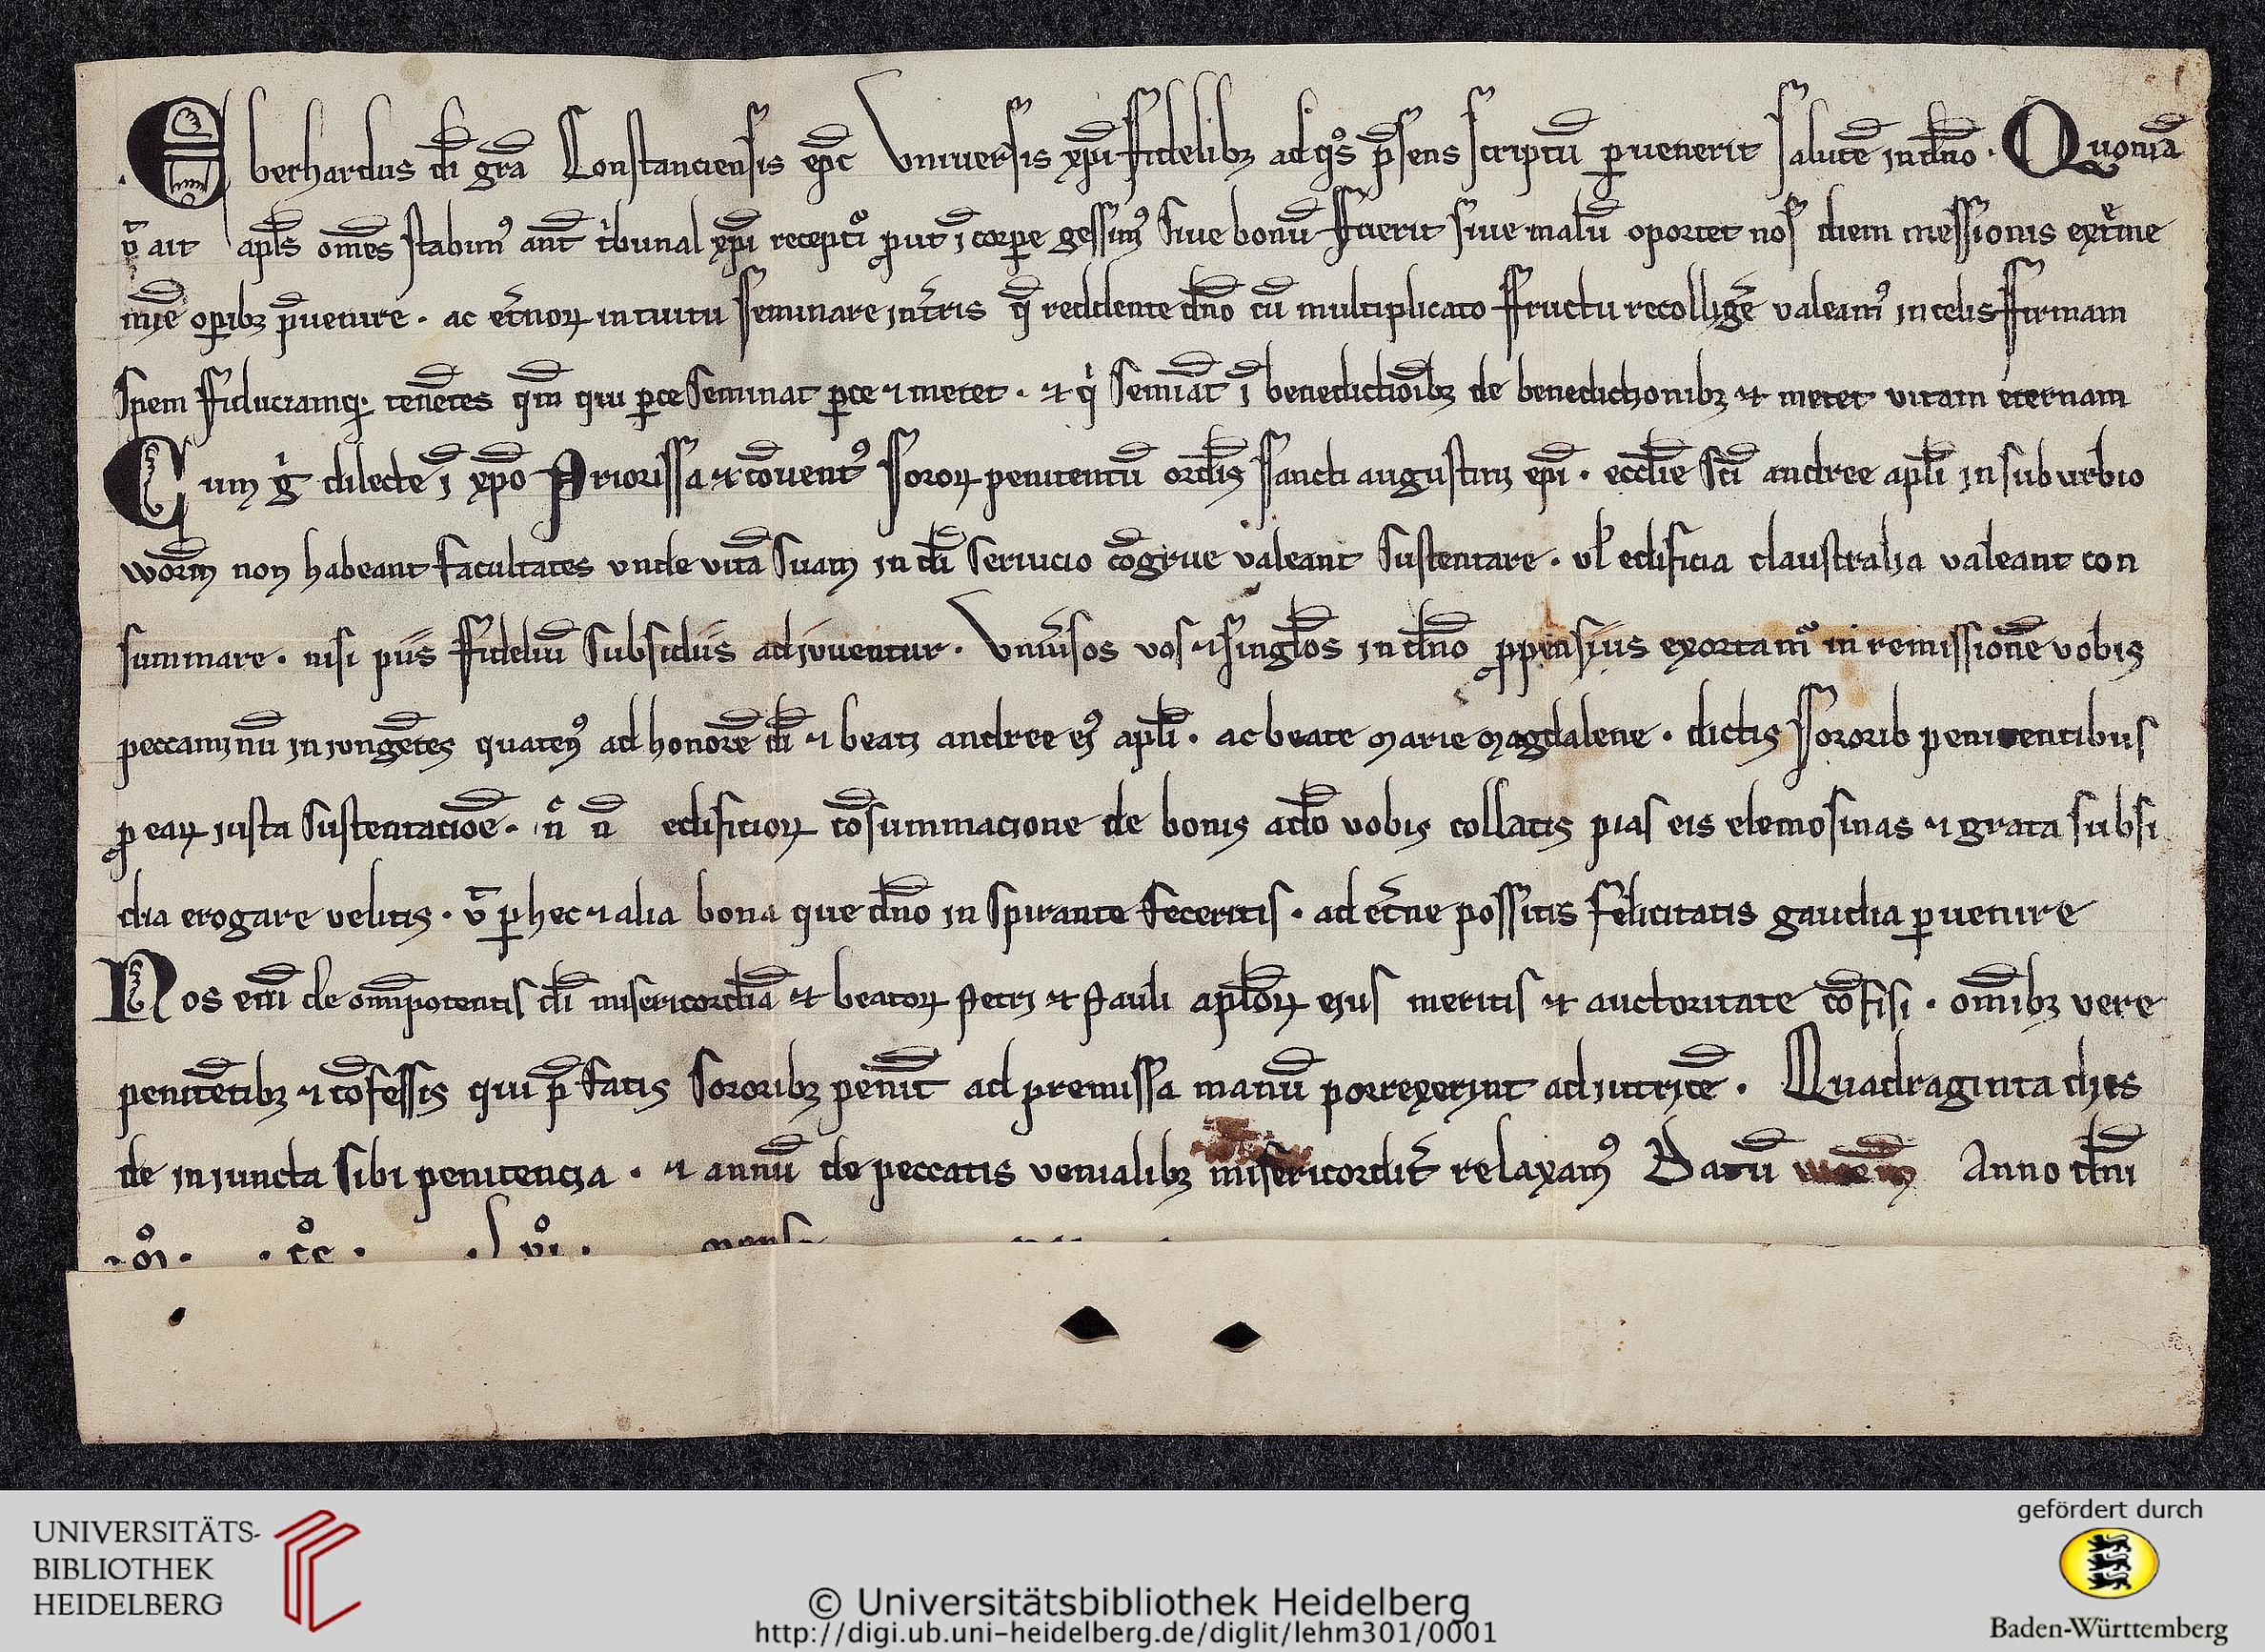 Eberhardus dī grā Constanciensis ep̄c Vniuersis xp̄i fidelibꝫ ad qͦs p̄sens scriptū ꝑuenerit salutē in dn̄o · Quoniā
ait apl̄s om̄es stabimꝰ an̄t tͥbunal xp̄i receptͥ ꝓut ī corꝑe gessimꝰ siue bonū fuerit siue malū oportet nos diem messionis extͤme
mīe oꝑibꝫ p̄uenire · ac et̄noꝝ intuitu seminare in t̄ris qd̄ reddente dn̄o cū multiplicato fructu recollige᷑ valeamꝰ in celis firmam
spem fiduciamqꝫ tenētes qm̄ qui ꝑce seminat ꝑce ⁊ metet · et qͥ semīat ī benedictiōibꝫ de benedictionibꝫ et metet vitam eternam
Cum gͥ dilecte ī xp̄o Priorissa ⁊ cōuentꝰ soroꝝ penitentū ordīs sancti augustini ep̄i · eccl̄ie sc̄i andree apl̄i in suburbio
worm̄ non habeant facultates vnde vitā suam in dī seruicio cōgrue valeant sustentare · vl̄ edificia claustralia valeant con
summare · nisi piis fidelium subsidiis adiuuentur · Vniu̅sos vos ⁊ singl̄os in dn̄o ꝓpensius exortamᷣ in remissionē vobis
peccaminū iniungētes quatenꝰ ad honorē dī ⁊ beati andree eiꝰ apl̄i · ac beate Marie Magdalene · dictis sororib penitentibus
ꝓ eaꝝ iusta sustentacioē · edificioꝝ cōsummacione de bonis a dō vobis collatis pias eis elemosinas ⁊ grata subsi
dia erogare velitis · vt̄ ꝑ hec ⁊ alia bona que dn̄o inspirante feceritis · ad et̄ne possitis felicitatis gaudia ꝑuenire
Nos eni̅ de om̄ipotentis dī misericordiā et beatoꝝ Petri et Pauli apl̄oꝝ ejus meritis et auctoritate cōfisi · om̄ibꝫ vere
penitētibꝫ ⁊ cōfessis qui p̄fatis sororibꝫ penit̄ ad premissa manū porrexerint adiutricē · Quadraginta dies
de iniuncta sibi penitencia · ⁊ annū de peccatis venialibꝫ misericordit̄ relaxamꝰ Datū Anno dn̄i
· Mͦ · · cͦc · · lviͦ · mense
UNIVERSITÄTS-
BIBLIOTHEK
HEIDELBERG
gefördert durch
Baden-Württemberg
© Universitätsbibliothek Heidelberg
http://digi.ub.uni-heidelberg.de/diglit/lehm301/0001